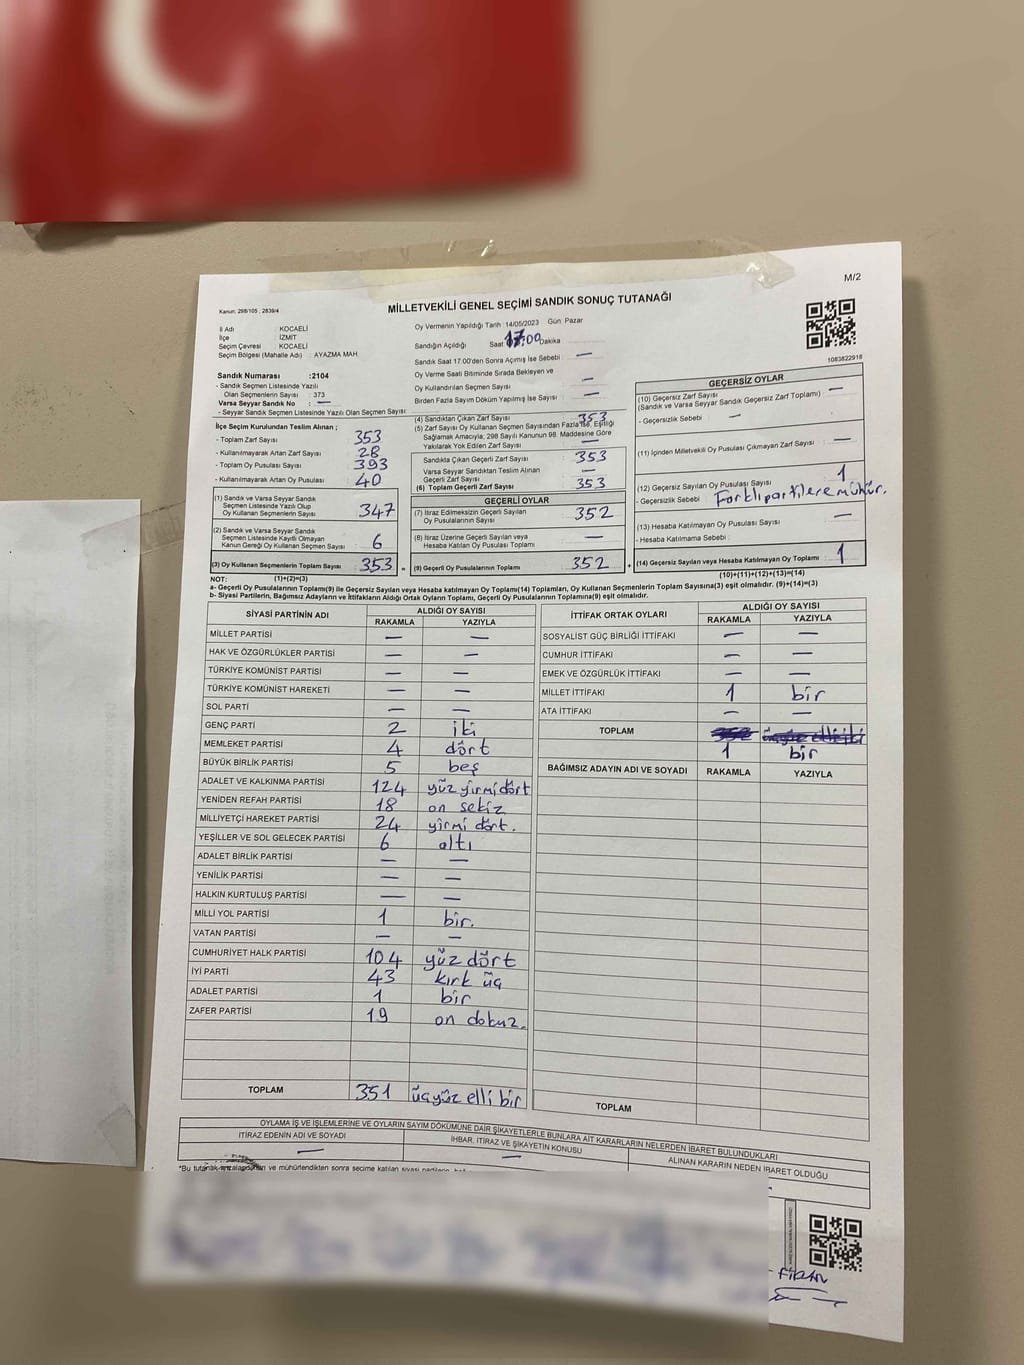 M/2
MİLLETVEKİLİ GENEL SEÇİMİ SANDIK SONUÇ TUTANAĞI
Kanun, 298/105 , 2839/4
İl Adı : KOCAELİ
İlçe : İZMİT
Seçim Çevresi : KOCAELİ
Seçim Bölgesi (Mahalle Adı) : AYAZMA MAH.
Oy Vermenin Yapıldığı Tarih : 14/05/2023 Gün: Pazar
Sandığın Açıldığı Saat 17:00 Dakika
Sandık Saat 17.00'den Sonra Açımış İse Sebebi : —
Oy Verme Saati Bitiminde Sırada Bekleyen ve
Oy Kullandırılan Seçmen Sayısı —
Birden Fazla Sayım Döküm Yapılmış İse Sayısı : —
1083822918
Sandık Numarası :2104
- Sandık Seçmen Listesinde Yazılı
Olan Seçmenlerin Sayısı : 373
Varsa Seyyar Sandık No : —
- Seyyar Sandık Seçmen Listesinde Yazılı Olan Seçmen Sayısı
İlçe Seçim Kurulundan Teslim Alınan ;
- Toplam Zarf Sayısı : 353
- Kullanılmayarak Artan Zarf Sayısı : 28
- Toplam Oy Pusulası Sayısı : 393
- Kullanılmayarak Artan Oy Pusulası : 40
(1) Sandık ve Varsa Seyyar Sandık
Seçmen Listesinde Yazılı Olup
Oy Kullanan Seçmenlerin Sayısı : 347
(2) Sandık ve Varsa Seyyar Sandık
Seçmen Listesinde Kayıtlı Olmayan
Kanun Gereği Oy Kullanan Seçmen Sayısı : 6
(3) Oy Kullanan Seçmenlerin Toplam Sayısı : 353
(4) Sandıktan Çıkan Zarf Sayısı : 353
(5) Zarf Sayısı Oy Kullanan Seçmen Sayısından Fazla ise, Eşitliği
Sağlamak Amacıyla; 298 Sayılı Kanunun 98. Maddesine Göre
Yakılarak Yok Edilen Zarf Sayısı : —
Sandıkta Çıkan Geçerli Zarf Sayısı : 353
Varsa Seyyar Sandıktan Teslim Alınan
Geçerli Zarf Sayısı : —
(6) Toplam Geçerli Zarf Sayısı : 353
GEÇERLİ OYLAR
(7) İtiraz Edilmeksizin Geçerli Sayılan
Oy Pusulalarının Sayısı : 352
(8) İtiraz Üzerine Geçerli Sayılan veya
Hesaba Katılan Oy Pusulası Toplamı : —
= (9) Geçerli Oy Pusulalarının Toplamı : 352 +
GEÇERSİZ OYLAR
(10) Geçersiz Zarf Sayısı : —
(Sandık ve Varsa Seyyar Sandık Geçersiz Zarf Toplamı)
- Geçersizlik Sebebi : —
(11) İçinden Milletvekili Oy Pusulası Çıkmayan Zarf Sayısı : —
(12) Geçersiz Sayılan Oy Pusulası Sayısı : 1
- Geçersizlik Sebebi : Farklı partilere mühür.
(13) Hesaba Katılmayan Oy Pusulası Sayısı : —
- Hesaba Katılmama Sebebi :
(14) Geçersiz Sayılan veya Hesaba Katılmayan Oy Toplamı : 1
NOT: (1)+(2)=(3) (10)+(11)+(12)+(13)=(14)
a- Geçerli Oy Pusulaları(9) ile Geçersiz Sayılan veya Hesaba katılmayan Oy Toplamı(14) Toplamları, Oy Kullanan Seçmenlerin Toplam Sayısına(3) eşit olmalıdır. (9)+(14)=(3)
b- Siyasi Partilerin, Bağımsız Adayların ve İttifakların Aldığı Ortak Oyların Toplamı, Geçerli Oy Pusulalarının Toplamına(9) eşit olmalıdır.
SİYASİ PARTİNİN ADI ALDIĞI OY SAYISI
RAKAMLA YAZIYLA
MİLLET PARTİSİ — —
HAK VE ÖZGÜRLÜKLER PARTİSİ — —
TÜRKİYE KOMÜNİST PARTİSİ — —
TÜRKİYE KOMÜNİST HAREKETİ — —
SOL PARTİ — —
GENÇ PARTİ 2 iki
MEMLEKET PARTİSİ 4 dört
BÜYÜK BİRLİK PARTİSİ 5 beş
ADALET VE KALKINMA PARTİSİ 124 yüz yirmi dört
YENİDEN REFAH PARTİSİ 18 on sekiz
MİLLİYETÇİ HAREKET PARTİSİ 24 yirmi dört.
YEŞİLLER VE SOL GELECEK PARTİSİ 6 altı
ADALET BİRLİK PARTİSİ — —
YENİLİK PARTİSİ — —
HALKIN KURTULUŞ PARTİSİ — —
MİLLİ YOL PARTİSİ 1 bir.
VATAN PARTİSİ — —
CUMHURİYET HALK PARTİSİ 104 yüz dört
İYİ PARTİ 43 kırk üç
ADALET PARTİSİ 1 bir
ZAFER PARTİSİ 19 on dokuz.
TOPLAM 351 üçyüz elli bir
İTTİFAK ORTAK OYLARI ALDIĞI OY SAYISI
RAKAMLA YAZIYLA
SOSYALİST GÜÇ BİRLİĞİ İTTİFAKI — —
CUMHUR İTTİFAKI — —
EMEK VE ÖZGÜRLÜK İTTİFAKI — —
MİLLET İTTİFAKI 1 bir
ATA İTTİFAKI — —
TOPLAM 352 üçyüz elli iki
1 bir
BAĞIMSIZ ADAYIN ADI VE SOYADI RAKAMLA YAZIYLA
TOPLAM
OYLAMA İŞ VE İŞLEMLERİNE VE OYLARIN SAYIM DÖKÜMÜNE DAİR ŞİKAYETLERLE BUNLARA AİT KARARLARIN NELERDEN İBARET BULUNDUKLARI
İTİRAZ EDENİN ADI VE SOYADI İHBAR, İTİRAZ VE ŞİKAYETİN KONUSU ALINAN KARARIN NEDEN İBARET OLDUĞU
— —